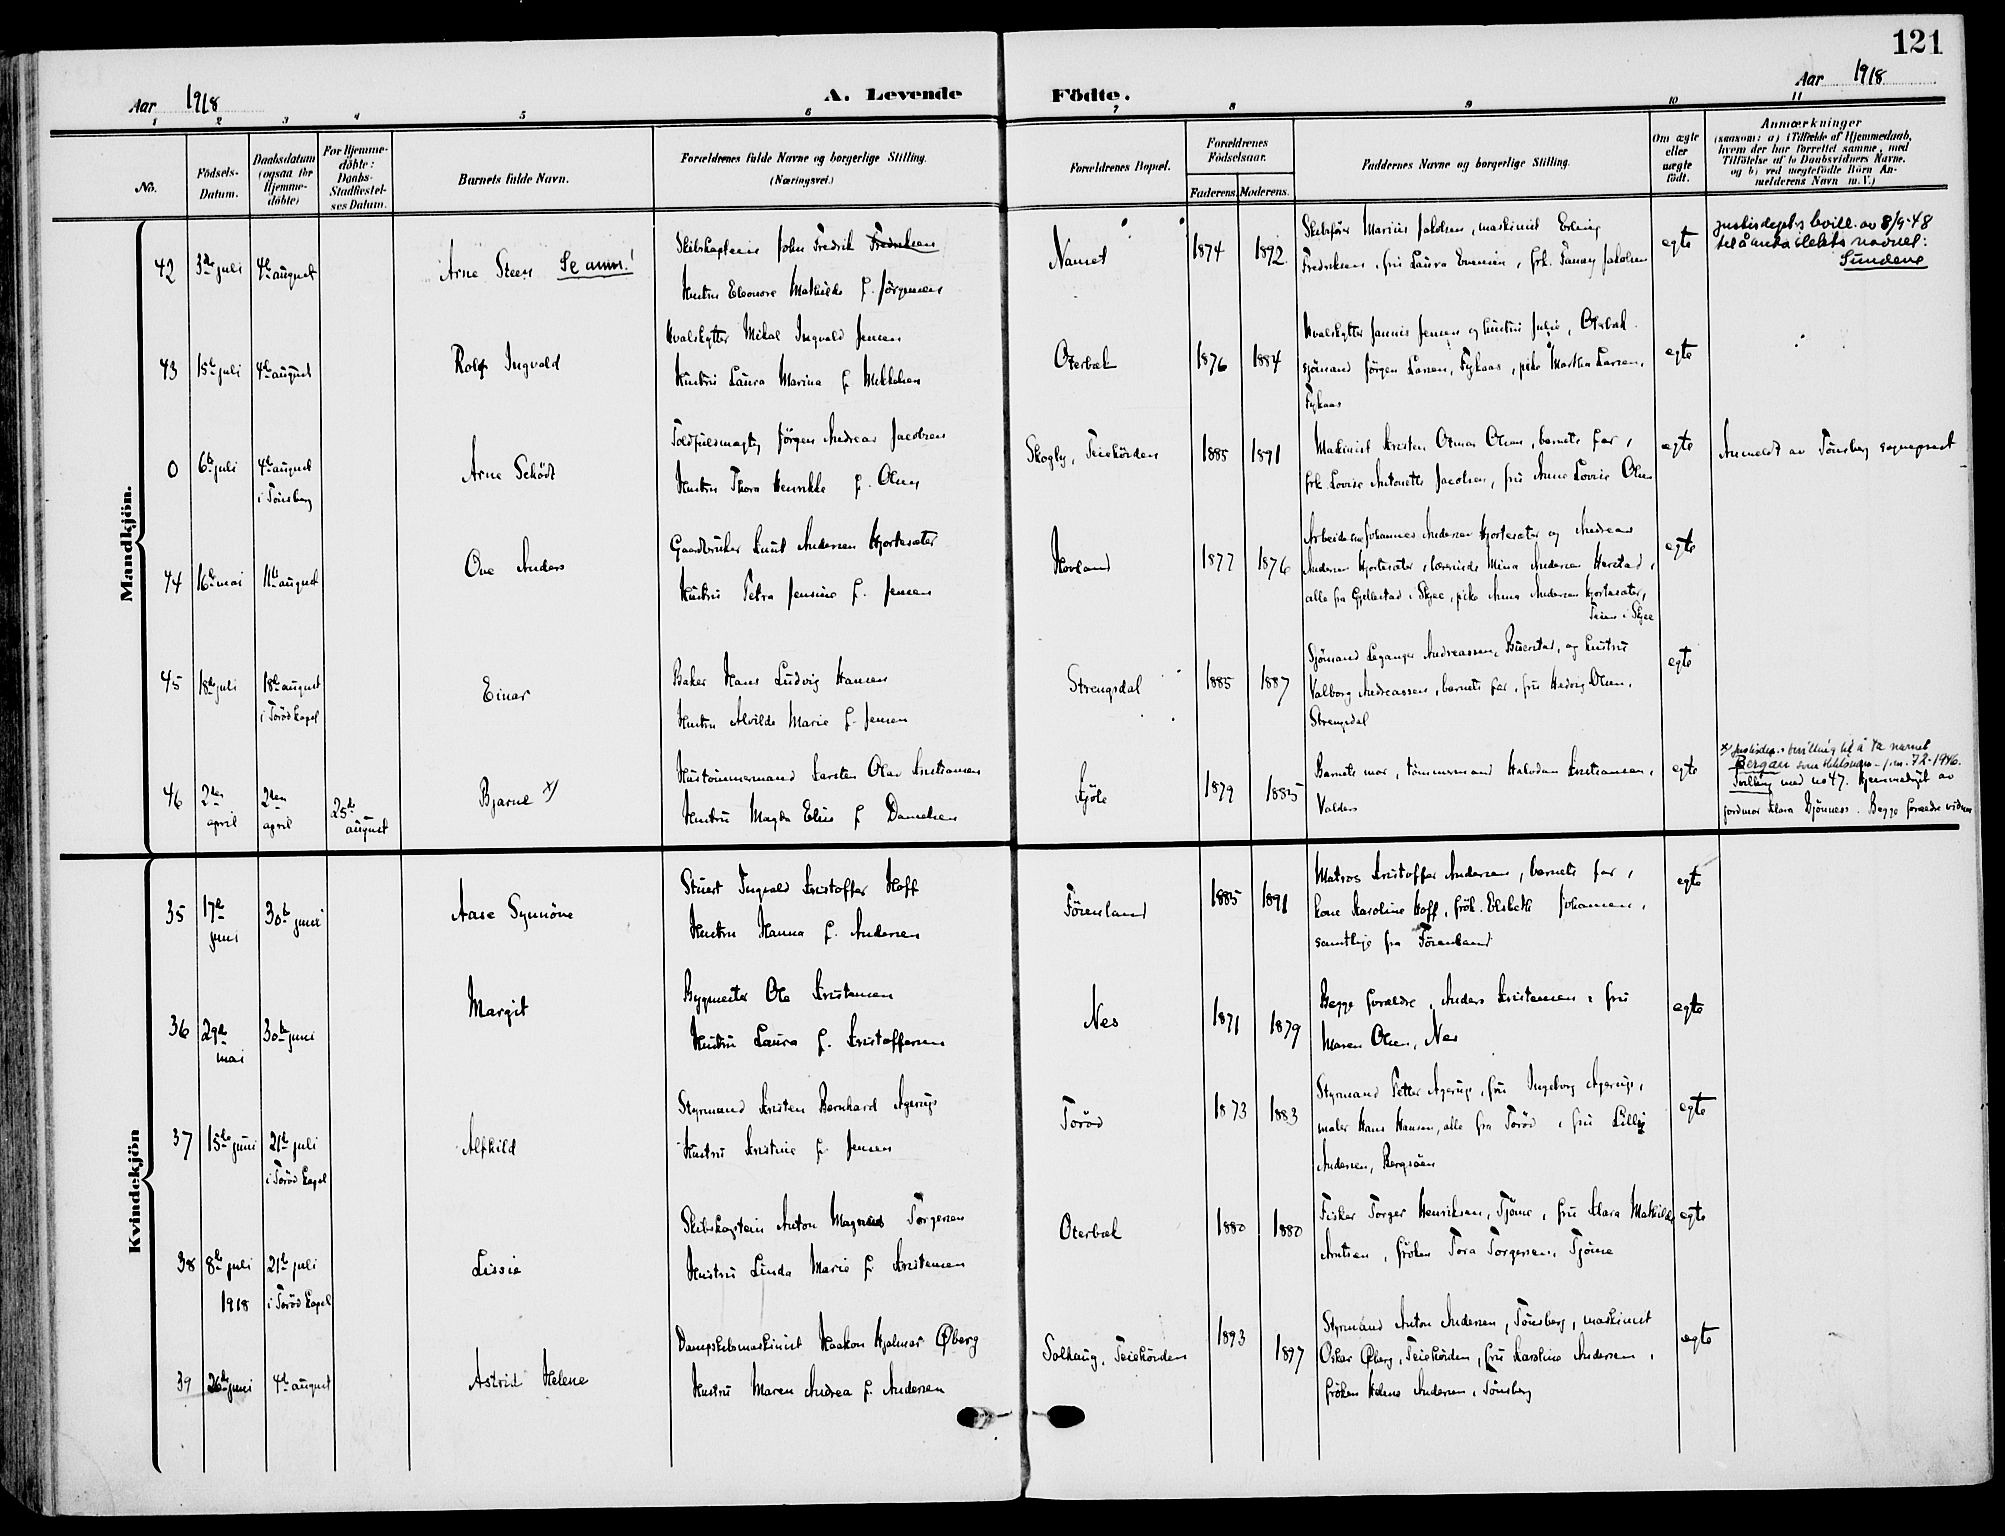 121
Aar 1918
A. Levende Födte.
Aar 1918
1 2 3 4 5 6 7 8 9 10 11
No.
Födsels-
Datum.
Daabsdatum
(ogsaa for
Hjemme-
döbte)
For Hjemme-
döbte:
Daabs-
Stadfæstel-
ses Datum.
Barnets fulde Navn.
Forældrenes fulde Navne og borgerlige Stilling.
(Næringsvei.)
Forældrenes Bopæl.
Forældrenes
Födselsaar.
Faderens.
Moderens.
Faddernes Navne og borgerlige Stilling.
Om ægte
eller
uægte
født.
Anmærkninger
(saasom: a) i Tilfælde af Hjemmedaab,
hvem der har forrettet samme, med
Tilföielse af to Daabsvidners Navne.
og b) ved uægtefödte Börn An-
melderens Navn m. V.)
Mandkjön.
42
3die juli
4de august
Arne Steen Se anm.!
Skibskaptein John Fredrik Fredriksen
Hustru Eleonore Mathilde f. Jörgensen
Namet
1874
1892
Skibsfør Marius Jakobsen, maskinist Erling
Fredriksen, fru Laura Evensen, frk. Fanny Jakobsen
egte
Justisdepts bevill. av 8/9-48
til å anta slekts navnet:
Sundene
43
15de juli
4de august
Rolf Ingvald
Hvalskytter Mikal Ingvald Jensen
Hustru Laura Marina f. Mikkelsen
Oterbæk
1876
1884
Hvalskytter Jannis Jensen og hustru Julie, Oterbæk
sjömand Jörgen Larsen, Fykaas, pike Martha Larsen,
Fykaas
egte
0
6te juli
4de august
i Tönsberg
Arne Schödt
Toldfuldmægtig Jörgen Andreas Jacobsen
Hustru Thora Henrikke f. Olsen
Skogly, Teiehöiden
1885
1891
Maskinist Kristen Otmar Olsen, barnets far,
frk. Lovise Antonette Jacobsen, fru Anne Lovise Olsen
egte
Anmeldt av Tönsberg sogneprest
44
16de mai
11te august
Ove Anders
Gaardbruker Knut Andersen Hjortesæter
Hustru Petra Jensine f. Jensen
Hovland
1877
1876
Arbeiderne Johannes Andersen Hjortesæter og Andreas
Andersen Hjortesæter, lærerinde Mina Andersen Herstad,
alle fra Gjellestad i Skjee, pike Anna Andersen Hjortesæter,
Teien i Skjee
egte
45
18de juli
18de august
i Torød kapel
Einar
Baker Hans Ludvig Hansen
Hustru Alvilde Marie f. Jensen
Strengsdal
1885
1887
Sjömand Leganger Andreassen, Buerstad, og hustru
Valborg Andreassen, barnets far, fru Hedvig Olsen,
Strengsdal
egte
46
2den
april
2den
april
25de
august
Bjarne x)
Hustömmermand Karsten Olav Kristiansen
Hustru Magda Elise f Danielsen
Kjöle
1879
1885
Barnets mor, tömmermand Halvdan Kristiansen,
Valders
egte
x) Justisdep.s bevilling til å ta navnet
Bergan som slektsnavn - j.nr. 72-1946.
Tvilling med no 47. Hjemmedöpt av
jordmor Klara Bjönness. Begge forældre vidner
Kvindekjön
35
17de
juni
30te juni
Aase Synnöve
Stuert Ingvald Kristoffer Hoff
Hustru Hanna f. Andersen
Förenland
1885
1891
Matros Kristoffer Andersen, barnets far,
kone Karoline Hoff, frök. Elsbeth Johansen,
samtlige fra Förenland
egte
36
29de
mai
30te juni
Margit
Bygmester Ole Kristensen
Hustru Laura f. Kristoffersen
Nes
1871
1879
Begge forældre, Anders Kristensen, fru
Maren Olsen, Nes
egte
37
15de juni
21de juli
i Torød kapel
Alfhild
Styrmand Kristen Bernhard Agerup
Hustru Kristine f. Jensen
Torød
1873
1883
Styrmand Petter Agerup, fru Ingeborg Agerup,
maler Hans Hansen, alle fra Torød, fru Lilly
Andersen, Bergsöen
egte
38
8de juli
1918
21de juli
i Torød kapel
Lissie
Skibskaptein Anton Magnus Torgersen
Hustru Linda Marie f. Kristensen
Oterbæk
1880
1880
Fisker Torger Henriksen, Tjöme, fru Klara Mathilde
Arntsen, fröken Tora Torgersen, Tjöme
egte
39
26de juni
4de august
Astrid Helene
Dampskibsmaskinist Haakon Hjalmar Øberg
Hustru Maren Andrea f. Andersen
Solhaug, Teiehöiden
1893
1897
Styrmand Anton Andersen, Tönsberg, maskinist
Oskar Øberg, Teiehöiden, fru Karoline Andersen,
fröken Helene Andersen, Tönsberg
egte